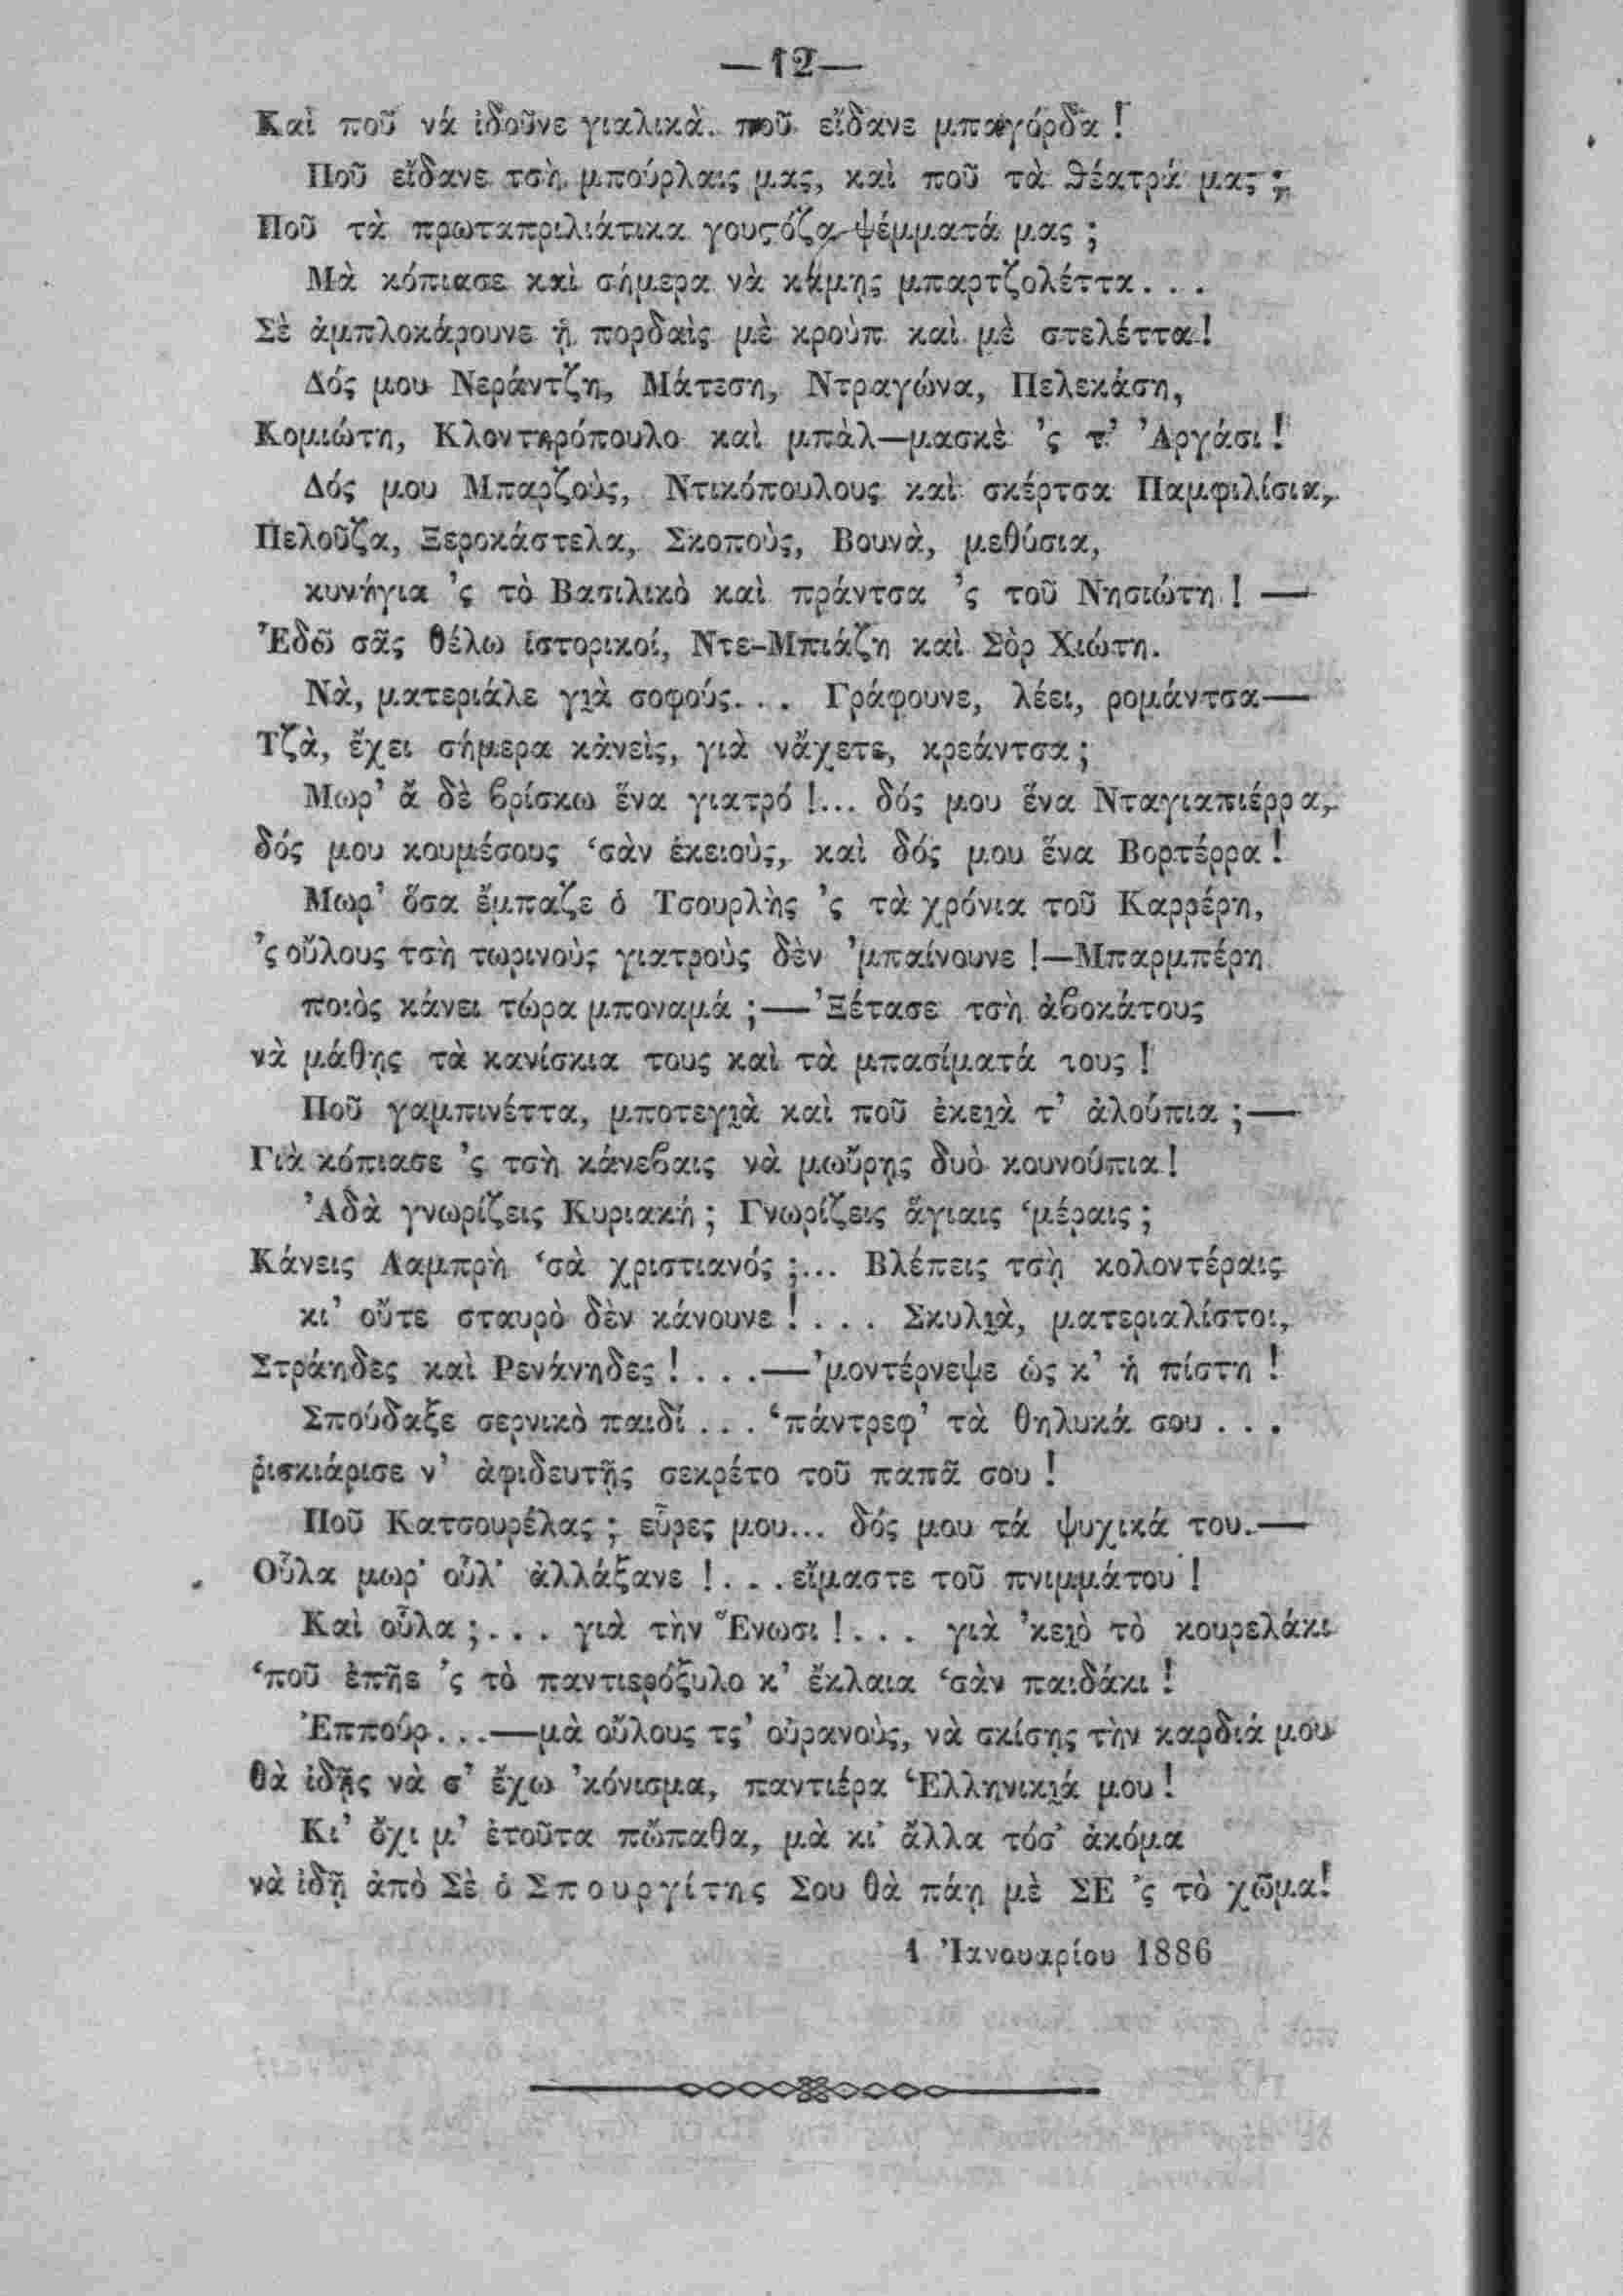 —12—
Καὶ ποῦ νά ἰδοῦνε γιαλικὰ. ποῦ εἴδανε μπαγόρδα !
Ποῦ εἴδανε τσὴ μπούρλαις μας, καὶ ποῦ τὰ θέατρά μας ;
Ποῦ τὰ πρωταπριλιάτικα γουστόζα ψέμματά μας ;
Μὰ κόπιασε καὶ σήμερα νὰ κάμῃς μπαρτζολέττα . . .
Σὲ ἀμπλοκάρουνε ᾑ πορδαὶς μὲ κρούπ καὶ μὲ στελέττα !
Δός μου Νεράντζη, Μάτεση, Ντραγώνα, Πελεκάση,
Κομιώτη, Κλοντηρόπουλο καὶ μπὰλ—μασκὲ 'ς τ' Ἀργάσι !
Δός μου Μπαρζοὺς, Ντικόπουλους καὶ σκέρτσα Παμφιλίσια,
Πελοῦζα, Ξεροκάστελα, Σκοποὺς, Βουνὰ, μεθύσια,
κυνήγια 'ς τὸ Βασιλικὸ καὶ πράντσα 'ς τοῦ Νησιώτη ! —
Ἐδῶ σᾶς θέλω ἱστορικοί, Ντε-Μπιάζη καὶ Σὸρ Χιώτη.
Νὰ, ματεριάλε γιὰ σοφούς. . . Γράφουνε, λέει, ρομάντσα—
Τζὰ, ἔχει σήμερα κἀνεὶς, γιὰ νἄχετε, κρεάντσα ;
Μωρ' ἄ δὲ βρίσκω ἕνα γιατρό !... δός μου ἕνα Νταγιαπιέρρα,
δός μου κουμέσους 'σὰν ἐκειοὺς, καὶ δός μου ἕνα Βορτέρρα !
Μωρ' ὅσα ἔμπαζε ὁ Τσουρλὴς 'ς τὰ χρόνια τοῦ Καρρέρη,
'ς οὕλους τσὴ τωρινοὺς γιατροὺς δὲν 'μπαίνουνε !—Μπαρμπέρη
ποιὸς κάνει τώρα μποναμά ;—'Ξέτασε τσὴ ἀβοκάτους
νὰ μάθῃς τὰ κανίσκια τους καὶ τὰ μπασίματά τους !
Ποῦ γαμπινέττα, μποτεγιὰ καὶ ποῦ ἐκειὰ τ' ἀλούπια ;—
Γιὰ κόπιασε 'ς τσὴ κάνεβαις νὰ μωὕρῃς δυὸ κουνούπια !
Ἀδὰ γνωρίζεις Κυριακή ; Γνωρίζεις ἅγιαις 'μέραις ;
Κάνεις Λαμπρὴ 'σὰ χριστιανός ;... Βλέπεις τσὴ κολοντέραις
κι' οὔτε σταυρὸ δὲν κάνουνε ! . . . Σκυλιὰ, ματεριαλίστοι,
Στράηδες καὶ Ρενάνηδες ! . . .—'μοντέρνεψε ὡς κ' ἡ πίστη !
Σπούδαξε σερνικὸ παιδί . . . 'πάντρεφ' τὰ θηλυκά σου . . .
ῥισκιάρισε ν' ἀφιδευτῇς σεκρέτο τοῦ παπᾶ σου !
Ποῦ Κατσουρέλας ; εὗρες μου... δός μου τά ψυχικά του.—
Οὗλα μωρ' οὗλ' ἀλλάξανε ! . . . εἴμαστε τοῦ πνιμμάτου !
Καὶ οὗλα ;. . . γιὰ τὴν Ἕνωσι ! . . . γιὰ 'κειὸ τὸ κουρελάκι
'ποῦ ἐπῆε 'ς τὸ παντιερόξυλο κ' ἔκλαια 'σὰν παιδάκι !
Ἐππούρ. . .—μὰ οὕλους τς' οὐρανοὺς, νὰ σκίσῃς τὴν καρδιά μου
θὰ ἰδῇς νὰ σ' ἔχω 'κόνισμα, παντιέρα Ἑλληνικιά μου !
Κι' ὄχι μ' ἐτοῦτα πὤπαθα, μὰ κι' ἄλλα τόσ' ἀκόμα
νὰ ἰδῇ ἀπὸ Σὲ ὁ Σπουργίτης Σου θὰ πάῃ μὲ ΣΕ 'ς τὸ χῶμα!
1 Ἰανουαρίου 1886